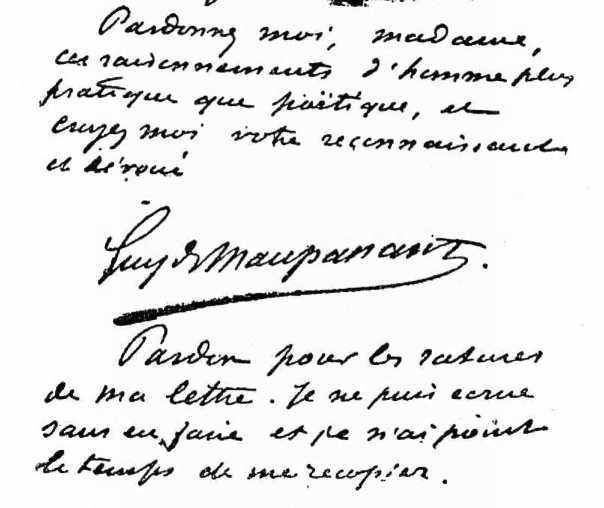 Pardonnez moi, madame,
ces raisonnements d'homme plus
pratique que poëtique, et
croyez moi votre reconnaissant
et dévoué
Guy de Maupassant.
Pardon pour les ratures
de ma lettre. Je ne puis ecrire
sans en faire et je n'ai point
le temps de me recopier.